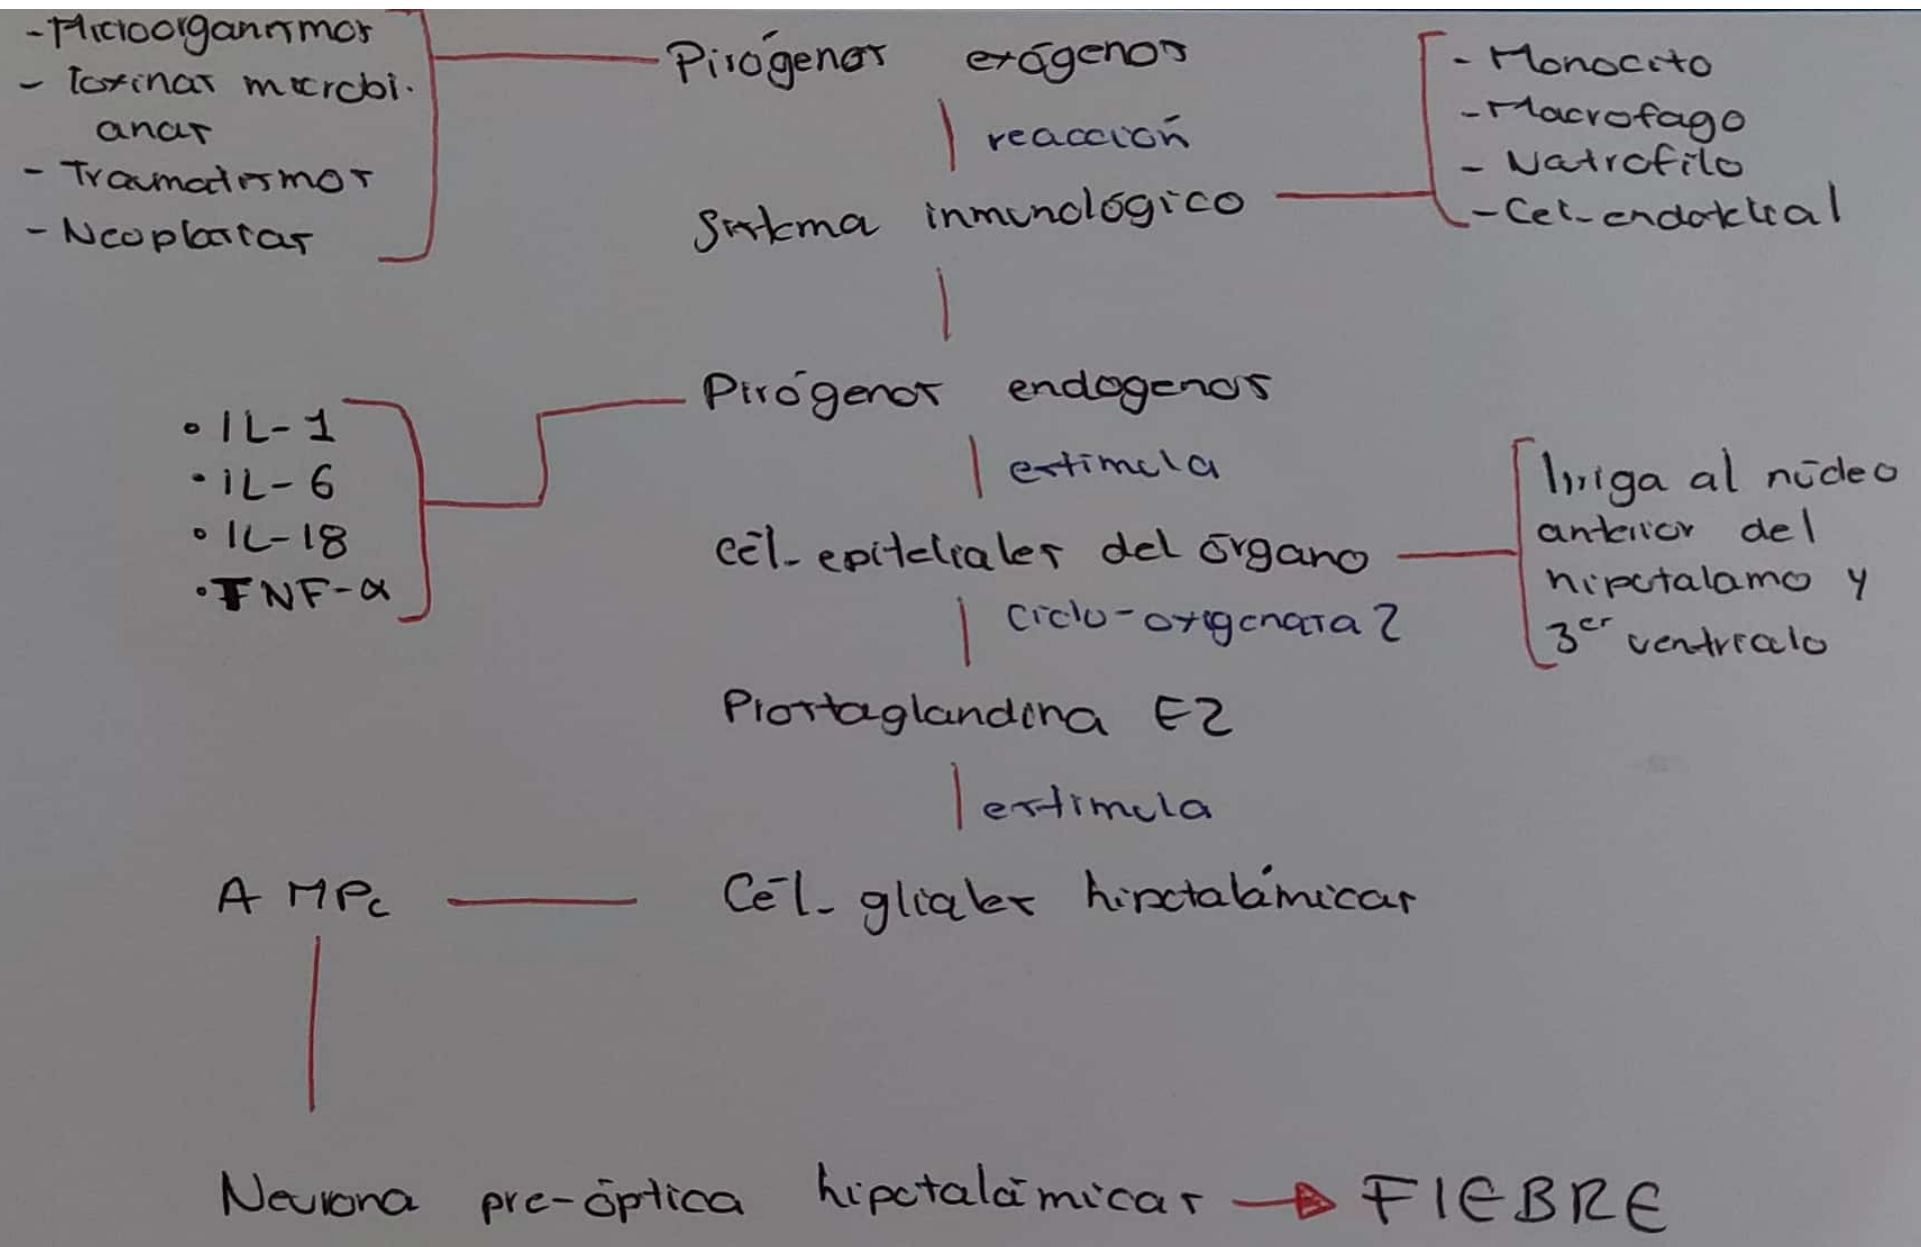 - Microorganismos
- Toxinas microbi-
anas
- Traumatismos
- Neoplasias
Pirógenos exógenos
reacción
Sistema inmunológico
- Monocito
- Macrofago
- Natrofilo
- Cel. endotelial
Pirógenos endogenos
• IL-1
• IL-6
• IL-18
• TNF-α
estimula
cél. epiteliales del órgano
Irriga al núcleo
anterior del
hipotalamo y
3er ventriculo
ciclo-oxigenasa 2
Prostaglandina E2
estimula
Cél. gliales hipotalámicas
AMPc
Neurona pre-óptica hipotalámicas → FIEBRE